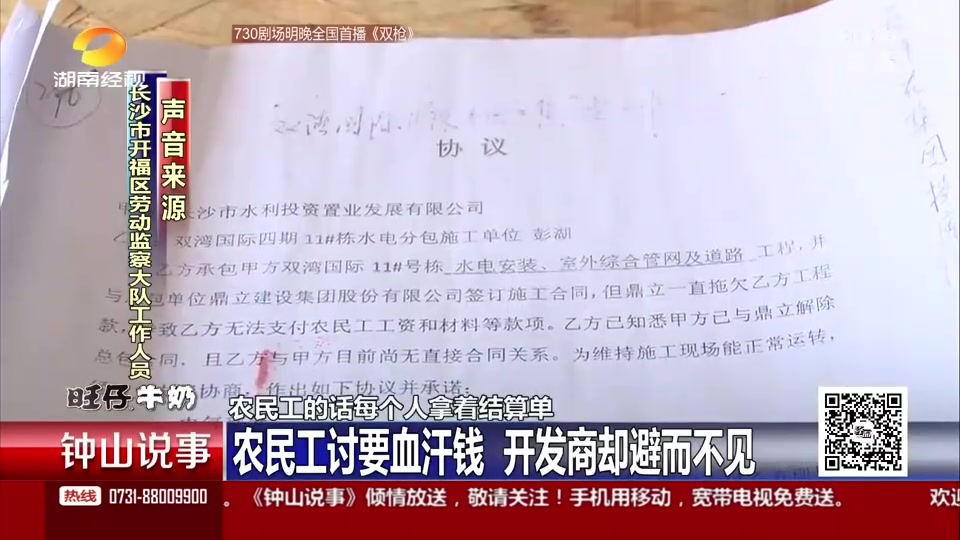 730剧场明晚全国首播《双枪》
湖南经视
声音来源
长沙市开福区劳动监察大队工作人员
双湾国际
协议
沙市水利投资置业发展有限公司
双湾国际四期11#栋水电分包施工单位 彭湖
乙方承包甲方双湾国际11#号栋 水电安装、室外综合管网及道路 工程，并
与 包单位鼎立建设集团股份有限公司签订施工合同，但鼎立一直拖欠乙方工程
款， 致乙方无法支付农民工工资和材料等款项。乙方已知悉甲方已与鼎立解除
总包合同，且乙方与甲方目前尚无直接合同关系。为维持施工现场能正常运转，
协商，作出如下协议并承诺：
旺仔牛奶
农民工的话每个人拿着结算单
钟山说事
农民工讨要血汗钱 开发商却避而不见
热线 0731-88009900
。《钟山说事》倾情放送，敬请关注！手机用移动，宽带电视免费送。 欢迎